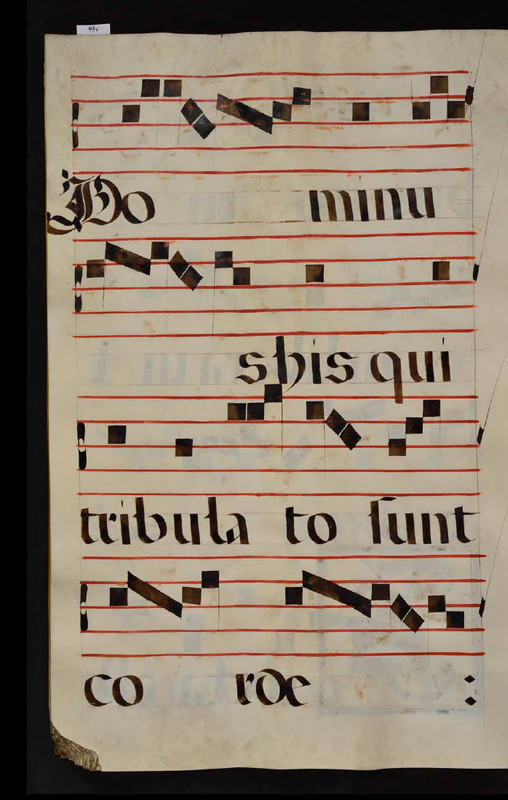 Do minu
s his qui
tribula to sunt
co rde :